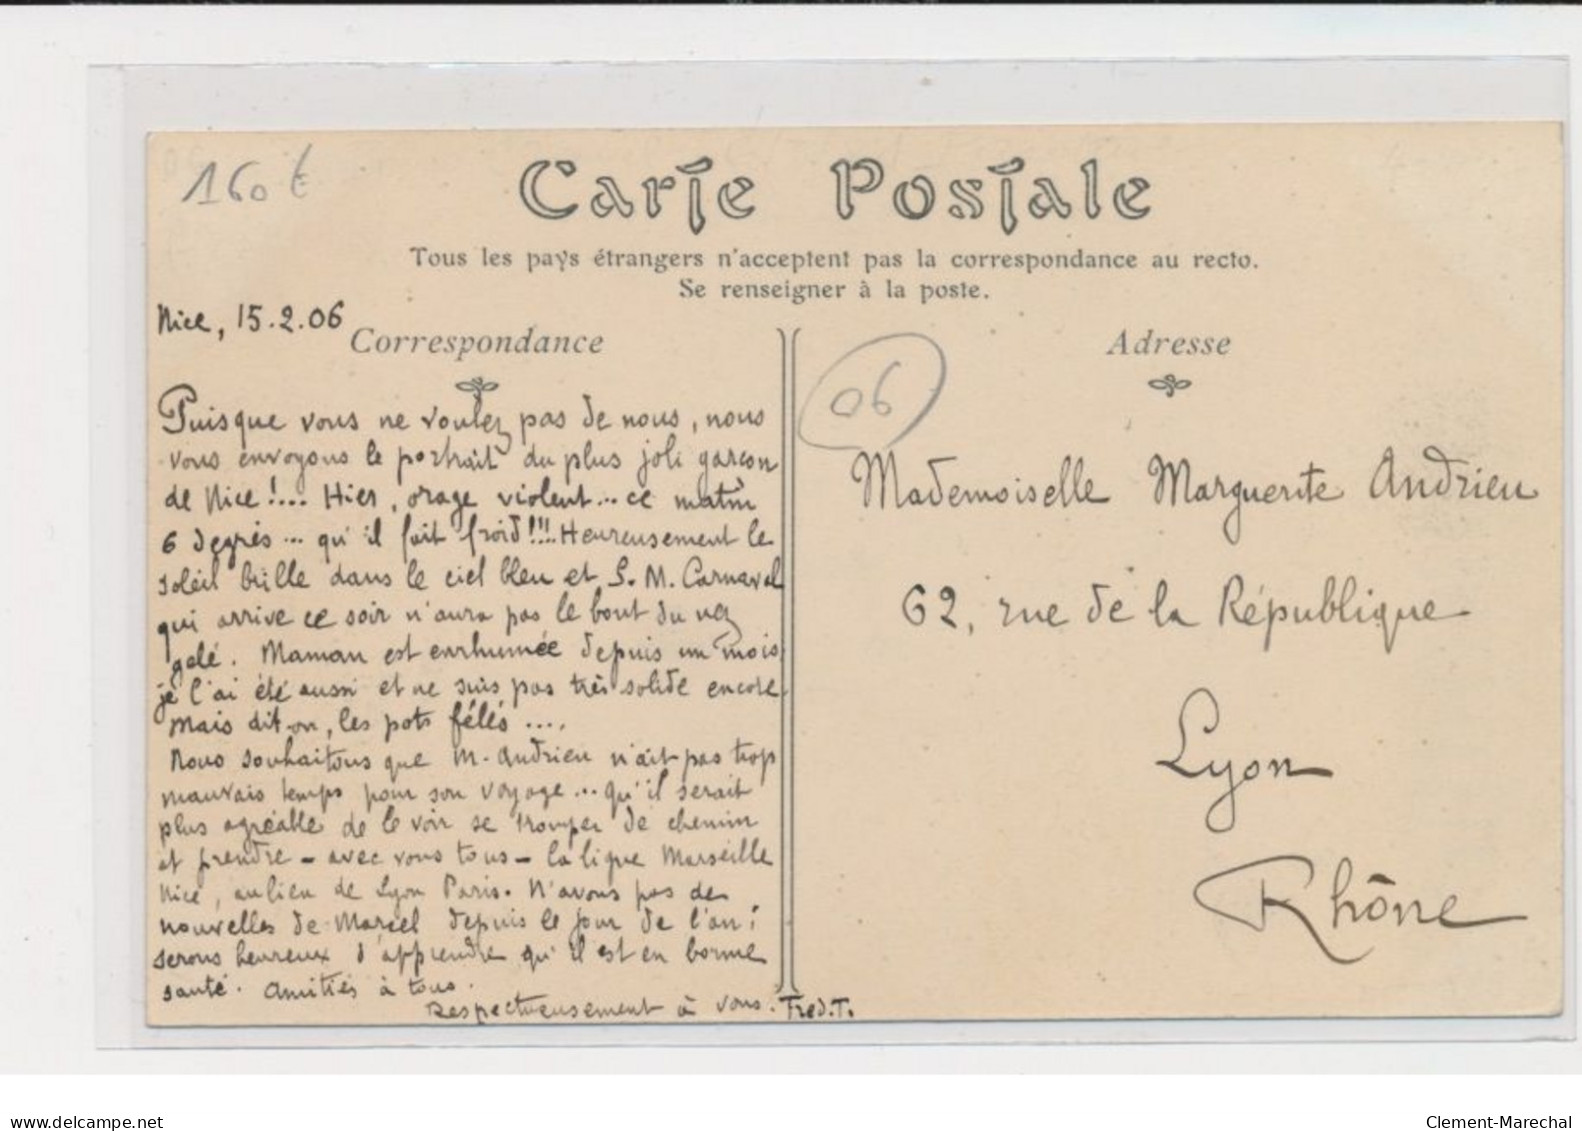 160 €
Carte Postale
Tous les pays étrangers n'acceptent pas la correspondance au recto.
Se renseigner à la poste.
Nice, 15.2.06
Correspondance
Puisque vous ne voulez pas de nous, nous
vous envoyons le portrait du plus joli garçon
de Nice!... Hier, orage violent... ce matin
6 degrés... qu'il fait froid!!!! Heureusement le
soleil brille dans le ciel bleu et S. M. Carnaval
qui arrive ce soir n'aura pas le bout du nez
gelé. Maman est enrhumée depuis un mois
je l'ai été aussi et ne suis pas très solide encore
Mais dit-on, les pots fêlés ....
Nous souhaitons que M. Andrieu n'ait pas trop
mauvais temps pour son voyage... qu'il serait
plus agréable de le voir se tromper de chemin
et prendre - avec vous tous - la ligne Marseille
Nice, au lieu de Lyon Paris. N'avons pas de
nouvelles de Marcel depuis le jour de l'an;
serons heureux d'apprendre qu'il est en bonne
santé. Amitiés à tous.
Respectueusement à vous. Fred. T.
Adresse
06
Mademoiselle Marguerite Andrieu
62, rue de la République
Lyon
Rhône
www.delcampe.net
Clement-Marechal